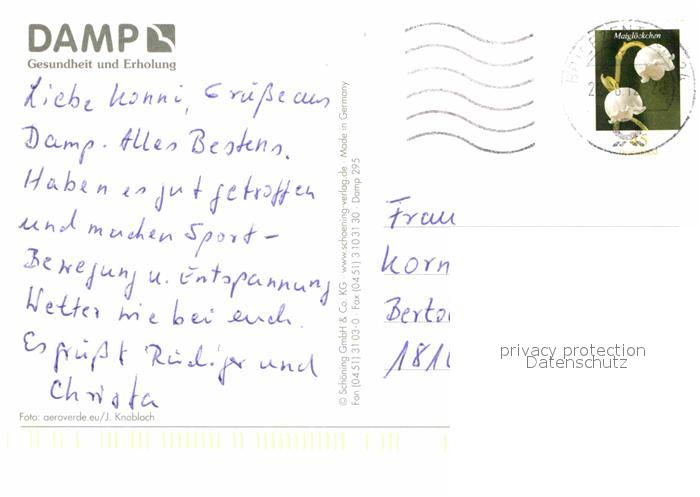 DAMP
Gesundheit und Erholung
Liebe Konni, Grüße aus
Damp. Alles Bestens.
Haben es gut getroffen
und machen Sport-
Bewegung u. Entspannung
Wetter wie bei euch.
Es grüßt Rüdiger und
Christa
Foto: aeroverde.eu/J. Knobloch
© Schöning GmbH & Co. KG · www.schoening-verlag.de · Made in Germany
Fon (0451) 31 03-0 · Fax (0451) 3 10 31 30 · Damp 295
Maiglöckchen
Frau
Korn
Berto
181
privacy protection
Datenschutz